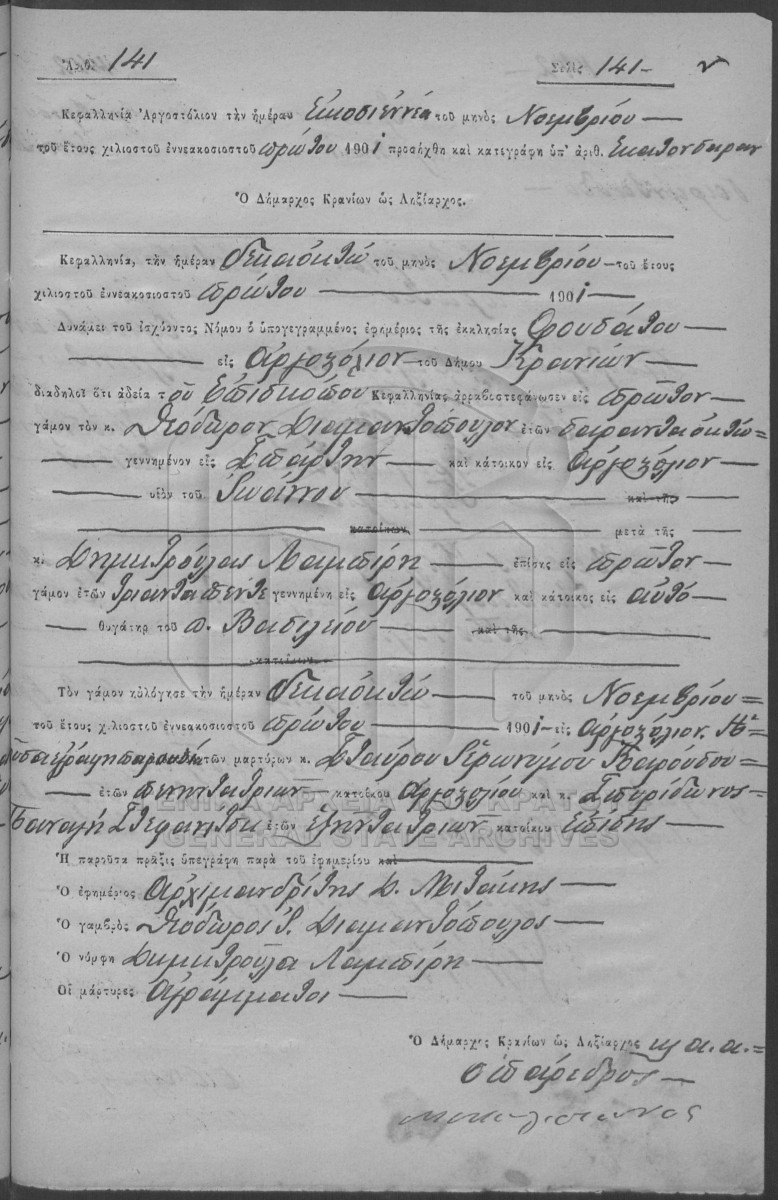 Ἀριθ. 141 Σελὶς 141
Κεφαλληνία Ἀργοστόλιον τὴν ἡμέραν Εἰκοσιεννέα τοῦ μηνὸς Νοεμβρίου
τοῦ ἔτους χιλιοστοῦ ἐννεακοσιοστοῦ πρώτου 1901 προσήχθη καὶ κατεγράφη ὑπ' ἀριθ. Ἑκατὸν σαραν
Ὁ Δήμαρχος Κρανίων ὡς Ληξίαρχος.
Κεφαλληνία, τὴν ἡμέραν δεκαοκτὼ τοῦ μηνὸς Νοεμβρίου τοῦ ἔτους
χιλιοστοῦ ἐννεακοσιοστοῦ πρώτου 1901
Δυνάμει τοῦ ἰσχύοντος Νόμου ὁ ὑπογεγραμμένος ἐφημέριος τῆς ἐκκλησίας Φουδάτου
εἰς Ἀργοστόλιον τοῦ Δήμου Κρανίων
διαδηλοῖ ὅτι ἀδεία τοῦ Ἐπισκόπου Κεφαλληνίας ἀρραβοστεφάνωσεν εἰς πρῶτον
γάμον τὸν κ. Θεόδωρον Διαμαντόπουλον ἐτῶν σαρανταοκτὼ
γεννημένον εἰς Σπάρτην καὶ κάτοικον εἰς Ἀργοστόλιον
υἱὸν τοῦ Ἰωάννου καὶ τῆς
κατοίκων μετὰ τῆς
κ. Δημητρούλας Λαμπίρη ἐπίσης εἰς πρῶτον
γάμον ἐτῶν τριανταπέντε γεννημένη εἰς Ἀργοστόλιον καὶ κάτοικος εἰς αὐτὸ
θυγάτηρ τοῦ π. Βασιλείου καὶ τῆς
κατοίκων
Τὸν γάμον ηὐλόγησε τὴν ἡμέραν δεκαοκτὼ τοῦ μηνὸς Νοεμβρίου
τοῦ ἔτους χιλιοστοῦ ἐννεακοσιοστοῦ πρώτου 1901 εἰς Ἀργοστόλιον.
τῶν μαρτύρων κ. Σταύρου Ἱερωνύμου Βαρούδου
ἐτῶν πενηντατριῶν κατοίκου Ἀργοστολίου καὶ κ. Σπυρίδωνος
Παναγῆ Στεφανίτση ἐτῶν ἑξηντατριῶν κατοίκου ἐπίσης
Ἡ παροῦσα πρᾶξις ὑπεγράφη παρὰ τοῦ ἐφημερίου καὶ
Ὁ ἐφημέριος Ἀρχιμανδρίτης Δ. Μιτάκης
Ὁ γαμβρὸς Θεόδωρος Ἰ. Διαμαντόπουλος
Ἡ νύμφη Δημητρούλα Λαμπίρη
Οἱ μάρτυρες Ἀγράμματοι
Ὁ Δήμαρχος Κρανίων ὡς Ληξίαρχος κ. α. α.
Ὁ πάρεδρος
ΓΕΝΙΚΑ ΑΡΧΕΙΑ ΤΟΥ ΚΡΑΤΟΥΣ
GENERAL STATE ARCHIVES